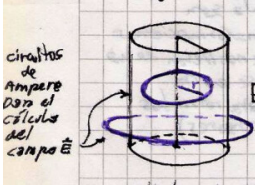 circuitos
de
Ampere
para el
cálculo
del
campo E
r